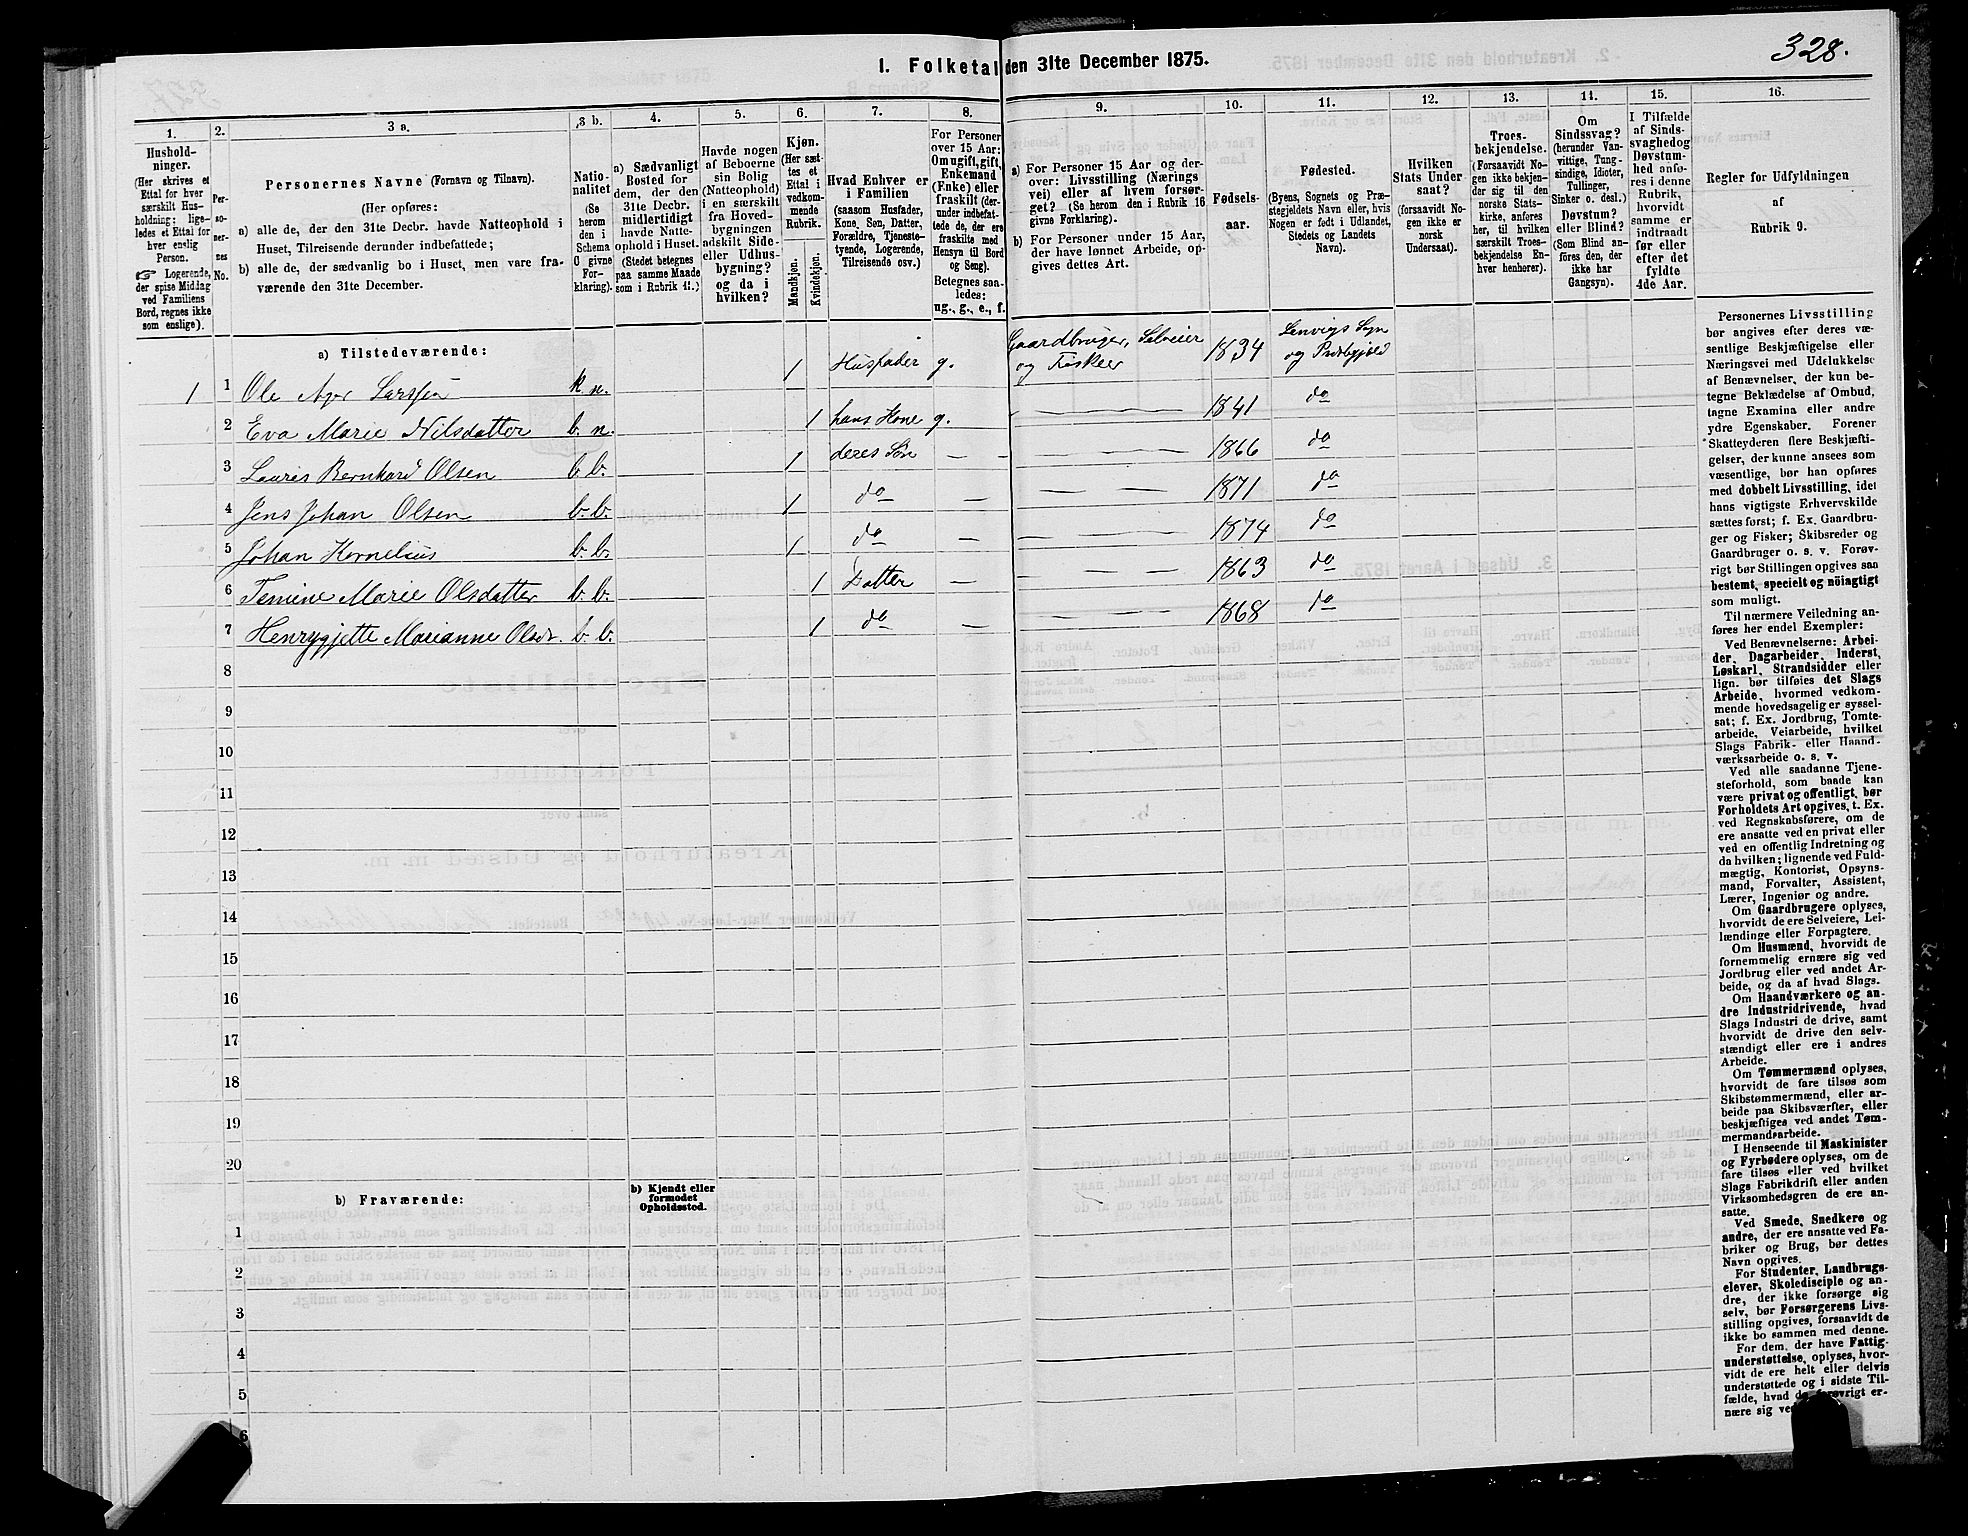 328.
I. Folketal den 31te December 1875.
1.
Hushold-
ninger.
(Her skrives et
Ettal for hver
særskilt Hus-
holdning; lige-
ledes et Ettal for
hver enslig
Person.
☞ Logerende,
der spise Middag
ved Familiens
Bord, regnes ikke
som enslige).
2.
Per-
so-
ner-
nes
No.
3 a.
Personernes Navne (Fornavn og Tilnavn).
(Her opføres:
a) alle de, der den 31te Decbr. havde Natteophold i
Huset, Tilreisende derunder indbefattede;
b) alle de, der sædvanlig bo i Huset, men vare fra-
værende den 31te December.
3 b.
Natio-
nalitet
(Se
herom
den i
Schema
C givne
For-
klaring).
4.
a) Sædvanligt
Bosted for
dem, der den
31te Decbr.
midlertidigt
havde Natte-
ophold i Huset.
(Stedet betegnes
paa samme Maade
som i Rubrik 11.)
5.
Havde nogen
af Beboerne
sin Bolig
(Natteophold)
i en særskilt
fra Hoved-
bygningen
adskilt Side-
eller Udhus-
bygning?
og da i
hvilken?
6.
Kjøn.
(Her sæt-
tes et
Ettal i
vedkom-
mende
Rubrik.
Mandkjøn.
Kvindekjøn.
7.
Hvad Enhver er
i Familien
(saasom Husfader,
Kone, Søn, Datter,
Forældre, Tjeneste-
tyende, Logerende,
Tilreisende osv.)
8.
For Personer
over 15 Aar:
Om ugift, gift,
Enkemand
(Enke) eller
fraskilt (der-
under indbefat-
tede de, der ere
fraskilte med
Hensyn til Bord
og Seng).
Betegnes saa-
ledes:
ug., g., e., f.
9.
a) For Personer 15 Aar og der-
over: Livsstilling (Nærings
vei) eller af hvem forsør-
get? (Se herom den i Rubrik 16
givne Forklaring).
b) For Personer under 15 Aar,
der have lønnet Arbeide, op-
gives dettes Art.
10.
Fødsels-
aar.
11.
Fødested.
(Byens, Sognets og Præ-
stegjeldets Navn eller, hvis
Nogen er født i Udlandet,
Stedets og Landets
Navn).
12.
Hvilken
Stats Under-
saat?
(forsaavidt No-
gen ikke er
norsk
Undersaat).
13.
Troes-
bekjendelse.
(Forsaavidt No-
gen ikke bekjen-
der sig til den
norske Stats-
kirke, anføres
her, til hvilken
særskilt Troes-
bekjendelse En-
hver henhører).
14.
Om
Sindssvag?
(herunder Van-
vittige, Tung-
sindige, Idioter,
Tullinger,
Sinker o. desl.)
Døvstum?
eller Blind?
(Som Blind an-
føres den, der
ikke har
Gangsyn).
15.
I Tilfælde
af Sinds-
svaghed og
Døvstum-
hed anfø-
res i denne
Rubrik,
hvorvidt
samme er
indtraadt
før eller
efter det
fyldte
4de Aar.
16.
Regler for Udfyldningen
af
Rubrik 9.
a) Tilstedeværende:
1 1 Ole Larssen k. n. 1 Husfader g. Gaardbruger, Selveier og Fisker 1834 Lenvigs Sogn og Prstegjeld
2 Eva Marie Nilsdatter b. n. 1 hans Kone g. — — — 1841 do
3 Lauris Bernhard Olsen b. b. 1 deres Søn — — — — — 1866 do
4 Jens Johan Olsen b. b. 1 do — — — — 1871 do
5 Johan Kornelius b. b. 1 do — — — — 1874 do
6 Temine Marie Olsdatter b. b. 1 Datter — — — — 1863 do
7 Henrygjette Marianne Olsdr. b. b. 1 do — — — 1868 do
8
9
10
11
12
13
14
15
16
17
18
19
20
b) Fraværende:
b) Kjendt eller
formodet
Opholdssted.
1
2
3
4
5
6
Personernes Livsstilling
bør angives efter deres væ-
sentlige Beskjæftigelse eller
Næringsvei med Udelukkelse
af Benævnelser, der kun be-
tegne Beklædelse af Ombud,
tagne Examina eller andre
ydre Egenskaber. Forener
Skatteyderen flere Beskjæfti-
gelser, der kunne ansees som
væsentlige, bør han opføres
med dobbelt Livsstilling, idet
hans vigtigste Erhvervskilde
sættes først; f. Ex. Gaardbru-
ger og Fisker; Skibsreder og
Gaardbruger o. s. v. Forøv-
rigt bør Stillingen opgives saa
bestemt, specielt og nöiagtigt
som muligt.
Til nærmere Veiledning an-
føres her endel Exempler:
Ved Benævnelserne: Arbei-
der, Dagarbeider, Inderst,
Løskarl, Strandsidder eller
lign. bør tilføies det Slags
Arbeide, hvormed vedkom-
mende hovedsagelig er syssel-
sat; f. Ex. Jordbrug, Tomte-
arbeide, Veiarbeide, hvilket
Slags Fabrik- eller Haand-
værksarbeide o. s. v.
Ved alle saadanne Tjene-
steforhold, som baade kan
være privat og offentligt, bør
Forholdets Art opgives, t. Ex.
ved Regnskabsførere, om de
ere ansatte ved en privat eller
ved en offentlig Indretning og
da hvilken; lignende ved Fuld-
mægtig, Kontorist, Opsyns-
mand, Forvalter, Assistent,
Lærer, Ingeniør og andre.
Om Gaardbrugere oplyses,
hvorvidt de ere Selveiere, Lei-
lændinge eller Forpagtere.
Om Husmænd, hvorvidt de
fornemmelig ernære sig ved
Jordbrug eller ved andet Ar-
beide, og da af hvad Slags.
Om Haandværkere og an-
dre Industridrivende, hvad
Slags Industri de drive, samt
hvorvidt de drive den selv-
stændigt eller ere i andres
Arbeide.
Om Tømmermænd oplyses,
hvorvidt de fare tilsøs som
Skibstømmermænd, eller ar-
beide paa Skibsværfter, eller
beskjæftiges ved andet Tøm-
mermandsarbeide.
I Henseende til Maskinister
og Fyrbødere oplyses, om de
fare tilsøs eller ved hvilket
Slags Fabrikdrift eller anden
Virksomhedsgren de ere an-
satte.
Ved Smede, Snedkere og
andre, der ere ansatte ved Fa-
briker og Brug, bør dettes
Navn opgives.
For Studenter, Landbrugs-
elever, Skoledisciple og an-
dre, der ikke forsørge sig
selv, bør Forsørgerens Livs-
stilling opgives, forsaavidt de
ikke bo sammen med denne.
For dem, der have Fattig-
understøttelse, oplyses, hvor-
vidt de ere helt eller delvis
understøttede og i sidste Til-
fælde, hvad de forøvrigt er-
nære sig